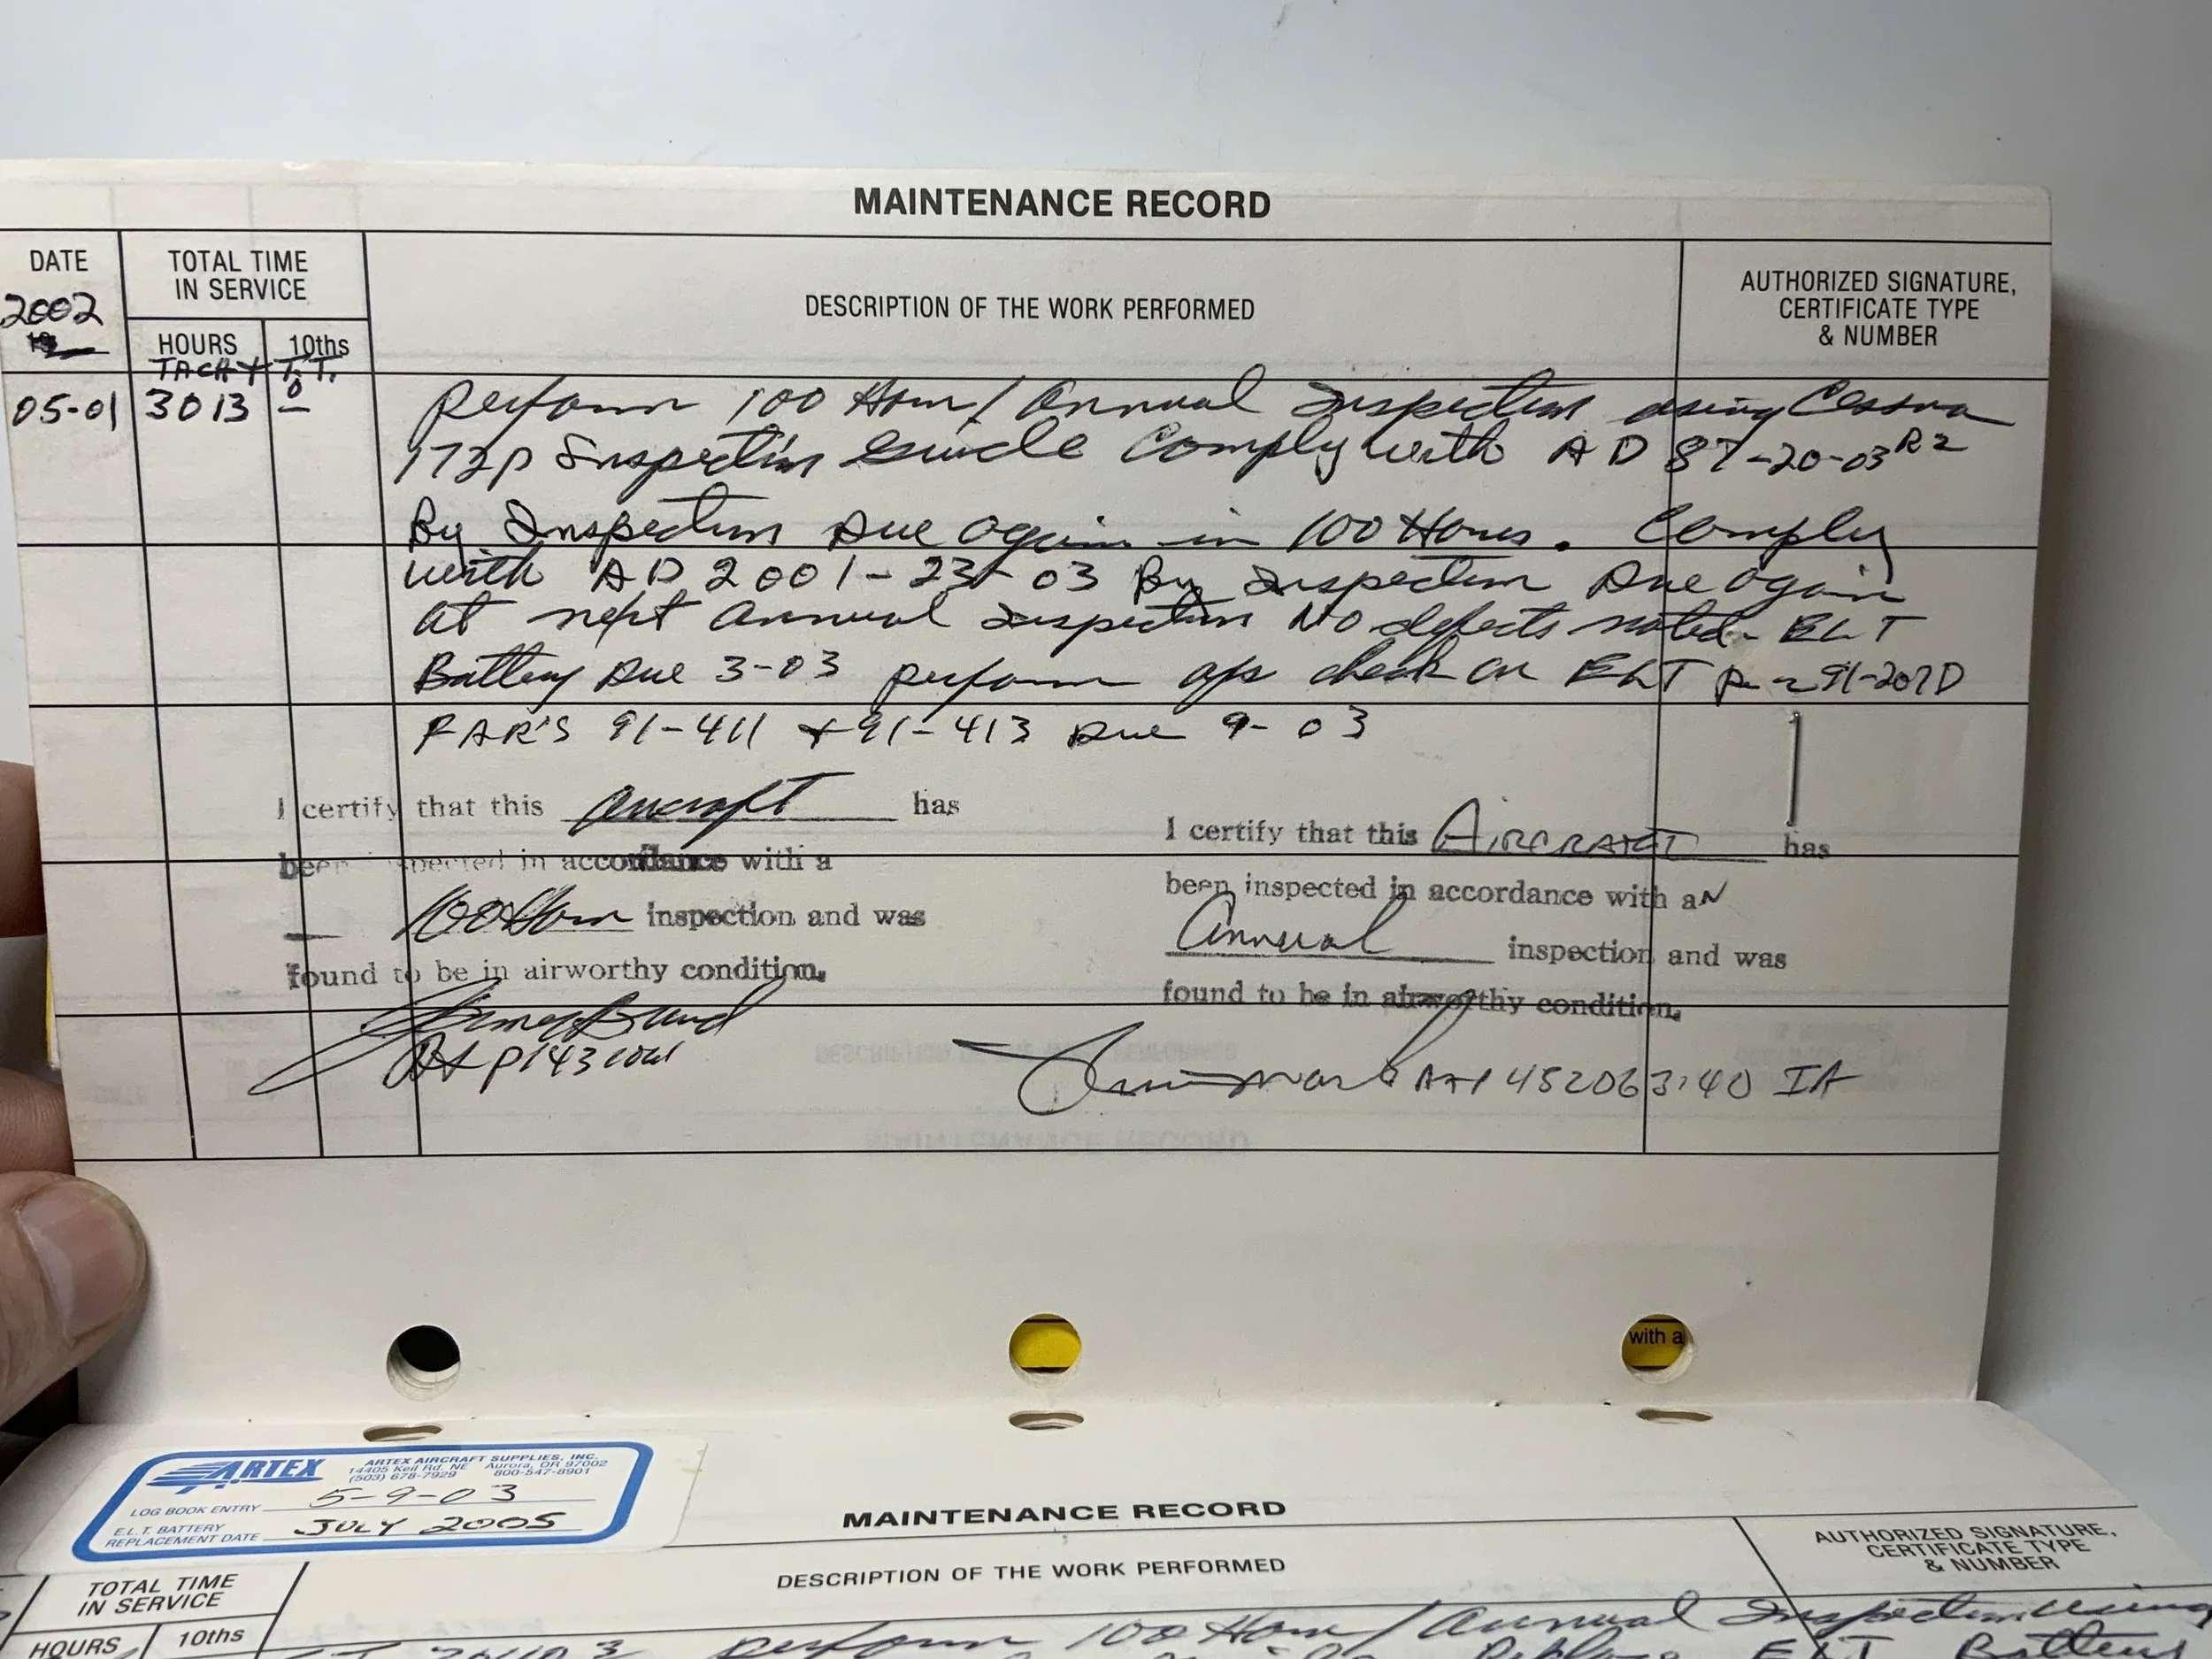 MAINTENANCE RECORD
DATE
2002
TOTAL TIME
IN SERVICE
HOURS
10ths
TACH + T.T.
DESCRIPTION OF THE WORK PERFORMED
AUTHORIZED SIGNATURE,
CERTIFICATE TYPE
& NUMBER
05-01 3013 0 Perform 100 Hour/Annual Inspection using Cessna
172P Inspection Guide Comply with AD 87-20-03 R2
By Inspection Due again in 100 Hours. Comply
with AD 2001-23-03 By Inspection Due again
at next annual inspection No defects noted- ELT
Battery Due 3-03 perform ops check on ELT per 91-207D
FAR'S 91-411 + 91-413 Due 9-03
I certify that this aircraft has
been inspected in accordance with a
100 Hour inspection and was
found to be in airworthy condition.
I certify that this AIRCRAFT has
been inspected in accordance with aN
Annual inspection and was
found to be in airworthy condition.
A+P
IA
with a
ARTEX
ARTEX AIRCRAFT SUPPLIES, INC.
14405 Keil Rd. NE Aurora, OR 97002
(503) 678-7929 800-547-8901
LOG BOOK ENTRY 5-9-03
E.L.T. BATTERY
REPLACEMENT DATE JULY 2005
MAINTENANCE RECORD
TOTAL TIME
IN SERVICE
HOURS
10ths
DESCRIPTION OF THE WORK PERFORMED
AUTHORIZED SIGNATURE,
CERTIFICATE TYPE
& NUMBER
perform 100 Hour/Annual Inspection using
ELT Battery